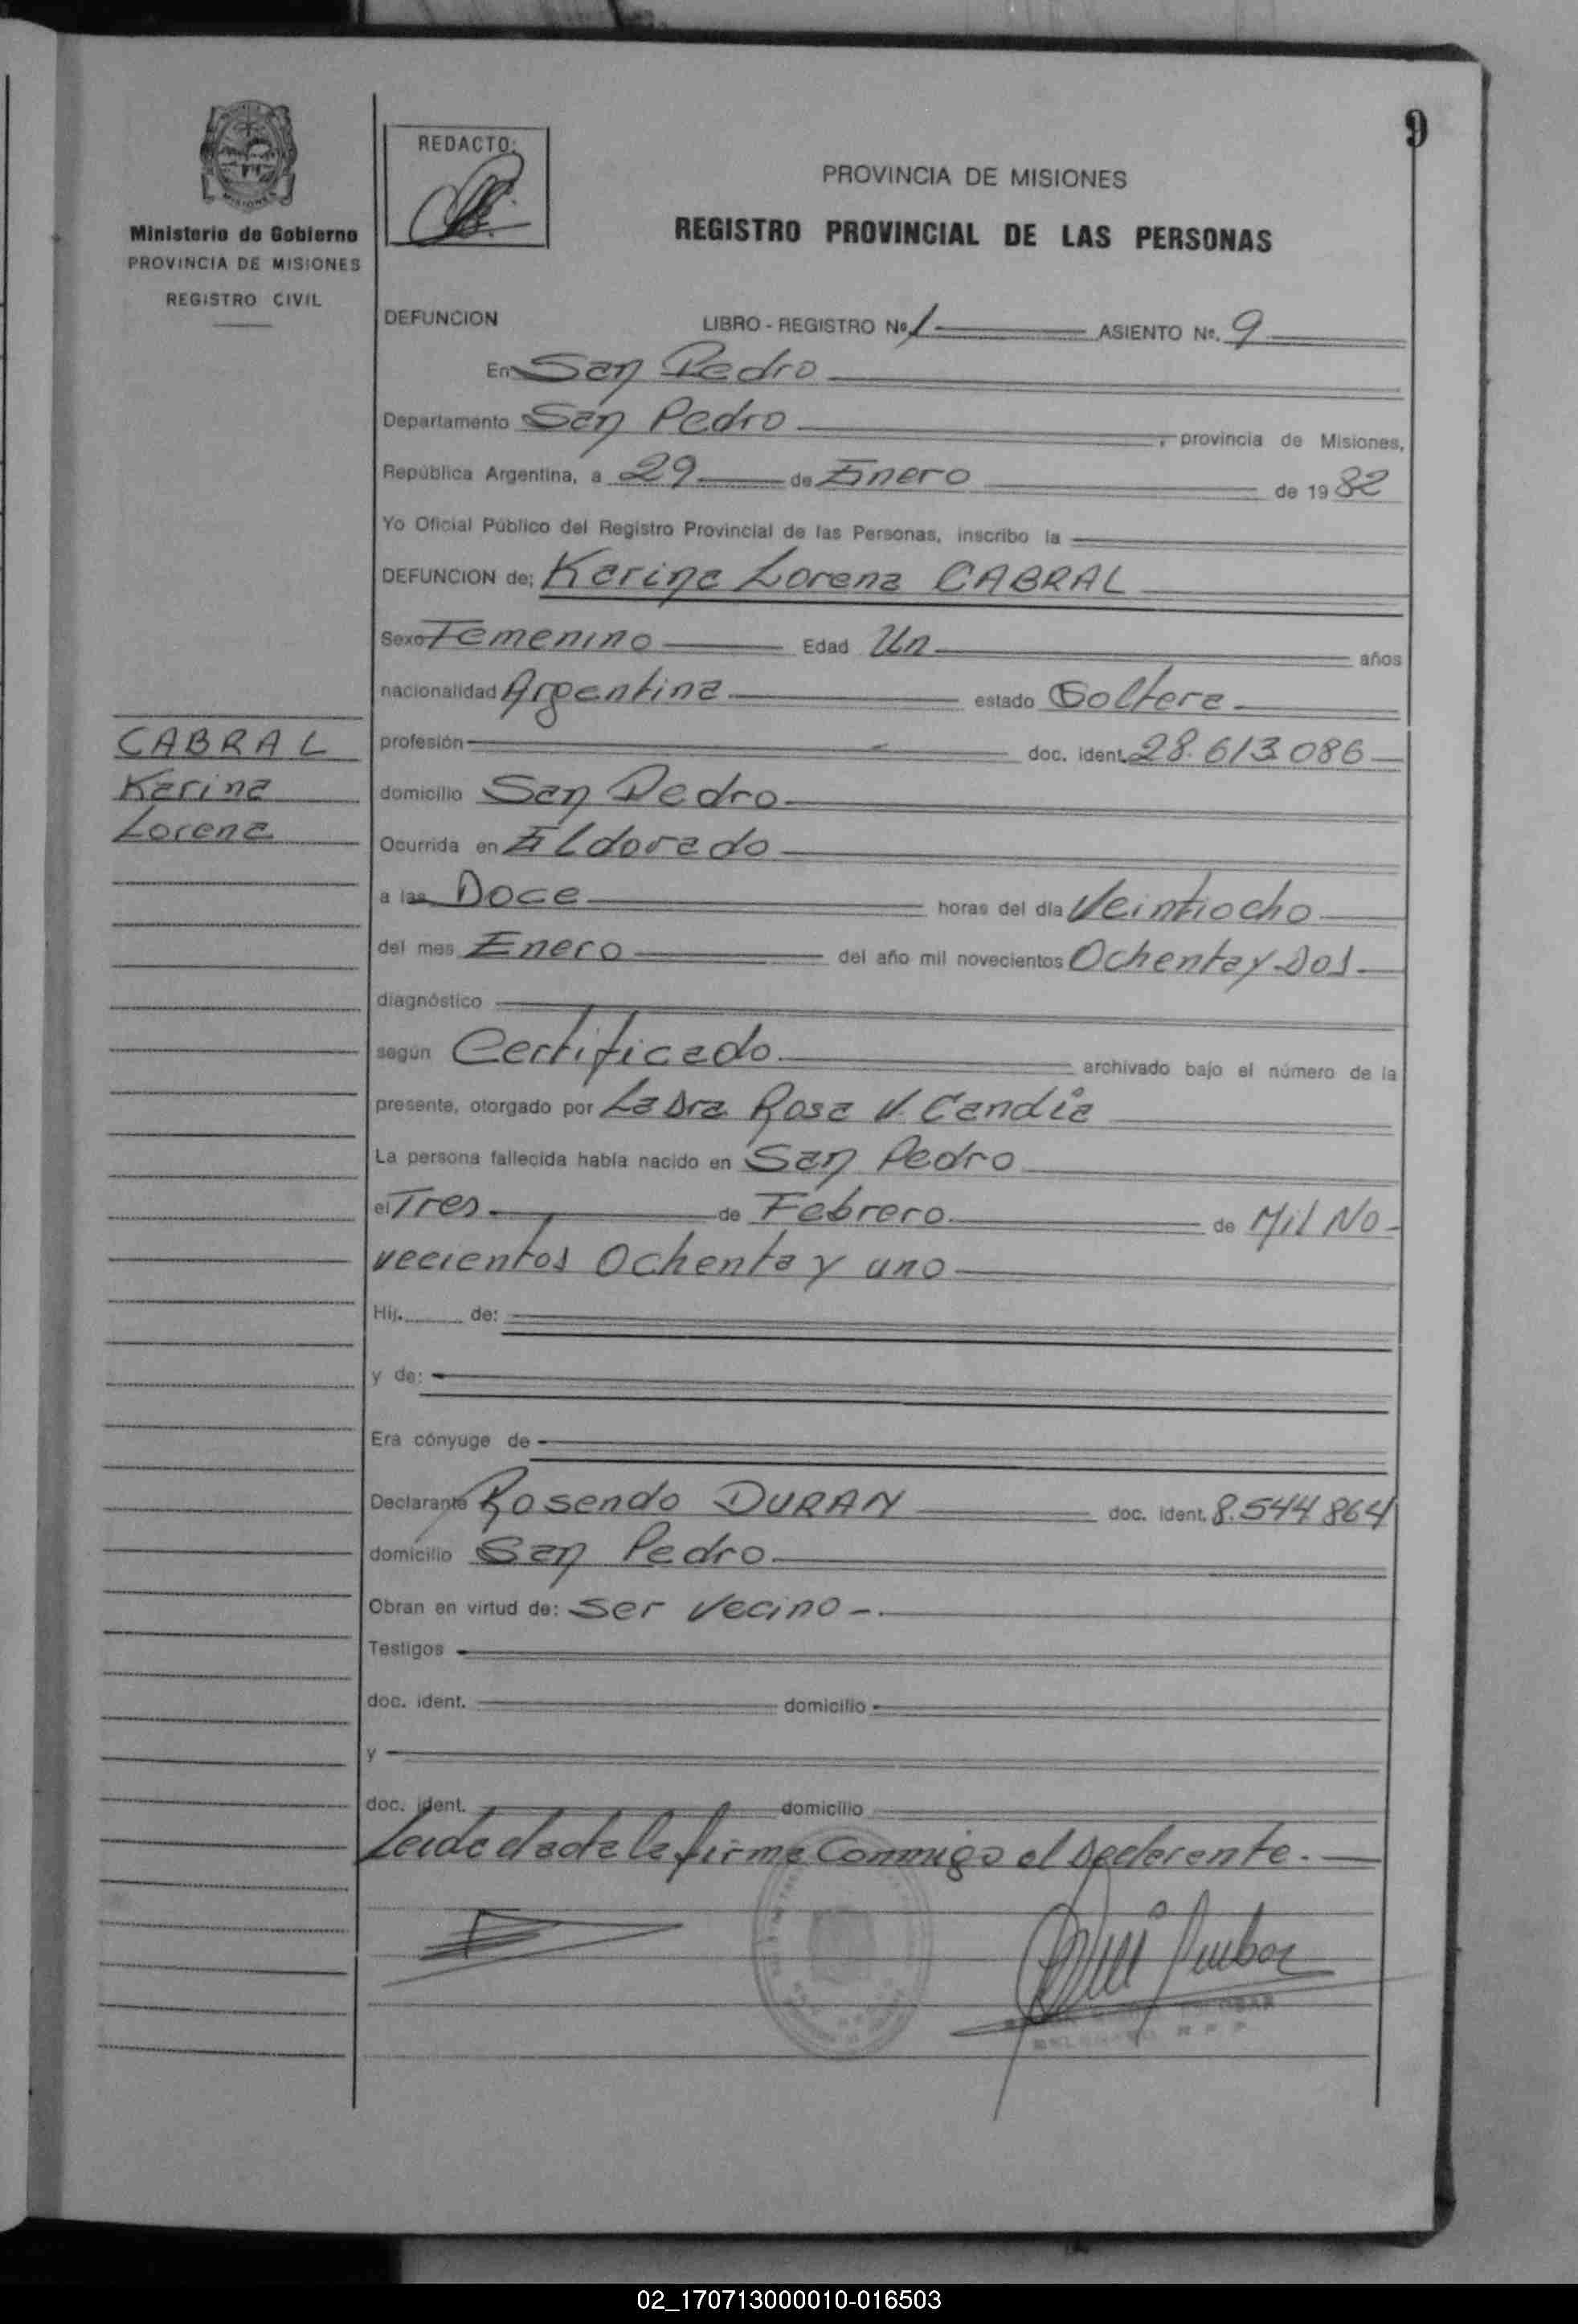 9
MISIONES
Ministerio de Gobierno
PROVINCIA DE MISIONES
REGISTRO CIVIL
REDACTO:
PROVINCIA DE MISIONES
REGISTRO PROVINCIAL DE LAS PERSONAS
DEFUNCION LIBRO - REGISTRO Nº 1 ASIENTO Nº. 9
En San Pedro
Departamento San Pedro, provincia de Misiones,
República Argentina, a 29 de Enero de 1982
Yo Oficial Público del Registro Provincial de las Personas, inscribo la
DEFUNCION de; Karina Lorena CABRAL
Sexo Femenino Edad Un años
nacionalidad Argentina estado Soltera
CABRAL
Karina
Lorena
profesión doc. ident. 28.613.086
domicilio San Pedro
Ocurrida en Eldorado
a las Doce horas del día Veintiocho
del mes Enero del año mil novecientos Ochenta y Dos
diagnóstico
según Certificado archivado bajo el número de la
presente, otorgado por La Dra Rosa V. Candia
La persona fallecida había nacido en San Pedro
el Tres de Febrero de Mil No-
vecientos Ochenta y uno
Hij. de:
y de:
Era cónyuge de
Declarante Rosendo DURAN doc. ident. 8.544 864
domicilio San Pedro
Obran en virtud de: Ser Vecino -.
Testigos
doc. ident. domicilio
y
doc. ident. domicilio
Leida el acta la firma Conmigo el Declarante.-
ESCOBAR
02_170713000010-016503